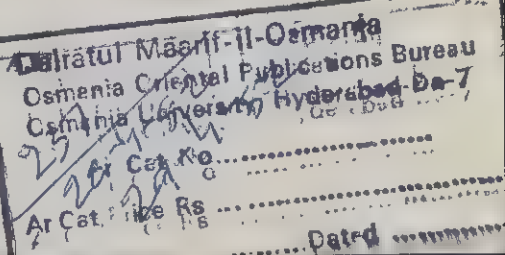 Dairatul Māarif-il-Osmania
Osmania Oriental Publications Bureau
Osmania University Hyderabad-Dn-7
Ar Cat. No
Ar Cat. Price Rs
Dated